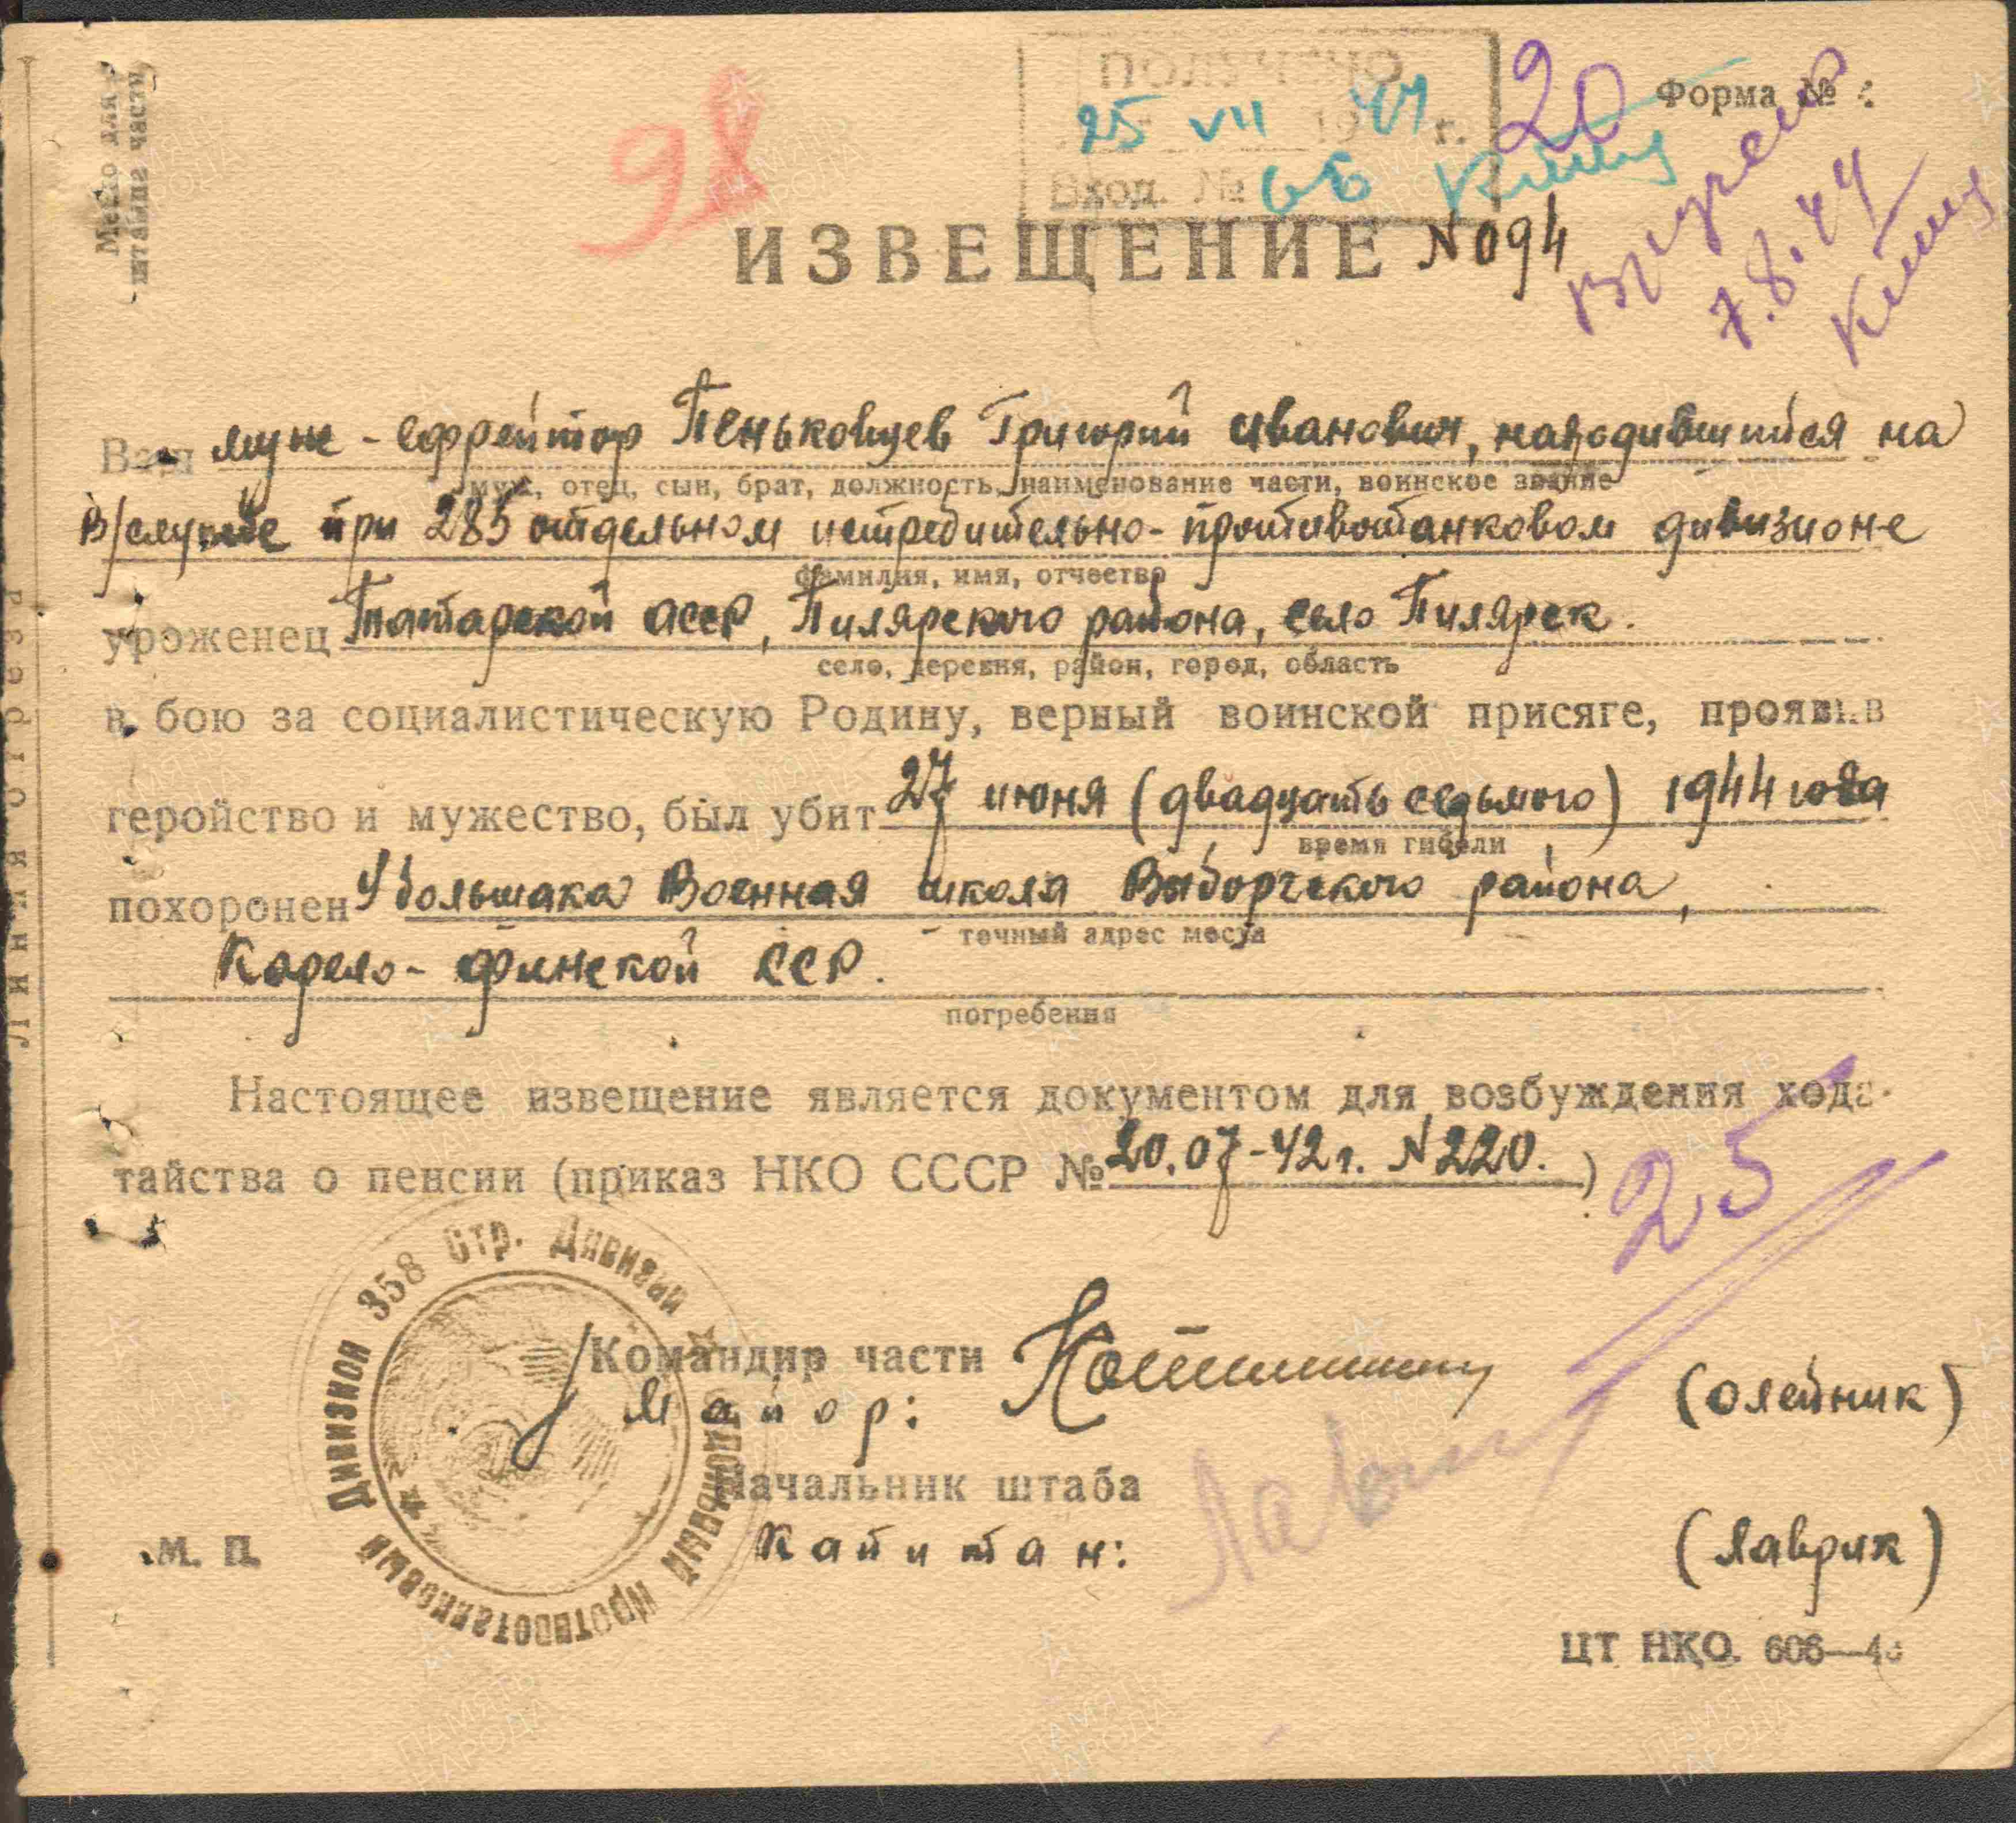 Место для
штампа части
ПОЛУЧЕНО
25 VII 1944 г.
Вход. №
20
Форма №
98
ИЗВЕЩЕНИЕ № 094
вручено
7.8.44
Ваш муж - ефрейтор Пеньковцев Григорий Иванович, находившийся на
муж, отец, сын, брат, должность, наименование части, воинское звание
в/службе при 285 отдельном истребительно-противотанковом дивизионе
фамилия, имя, отчество
уроженец Татарской АССР, Билярского района, село Билярск.
село, деревня, район, город, область
в бою за социалистическую Родину, верный воинской присяге, проявив
геройство и мужество, был убит 27 июня (двадцать седьмого) 1944 года
время гибели
похоронен У большака Военная школа Выборгского района,
точный адрес места
Карело-Финской ССР.
погребения
Настоящее извещение является документом для возбуждения хода-
тайства о пенсии (приказ НКО СССР № 20.07-42г. N220.)
25
Командир части
Майор:
(Олейник)
Начальник штаба
Капитан:
(Лаврик)
М. П.
Дивизион 358 Стр. Дивизии
Противотанковый
ЦТ НКО. 606—4
Линия отреза
ПАМЯТЬ НАРОДА